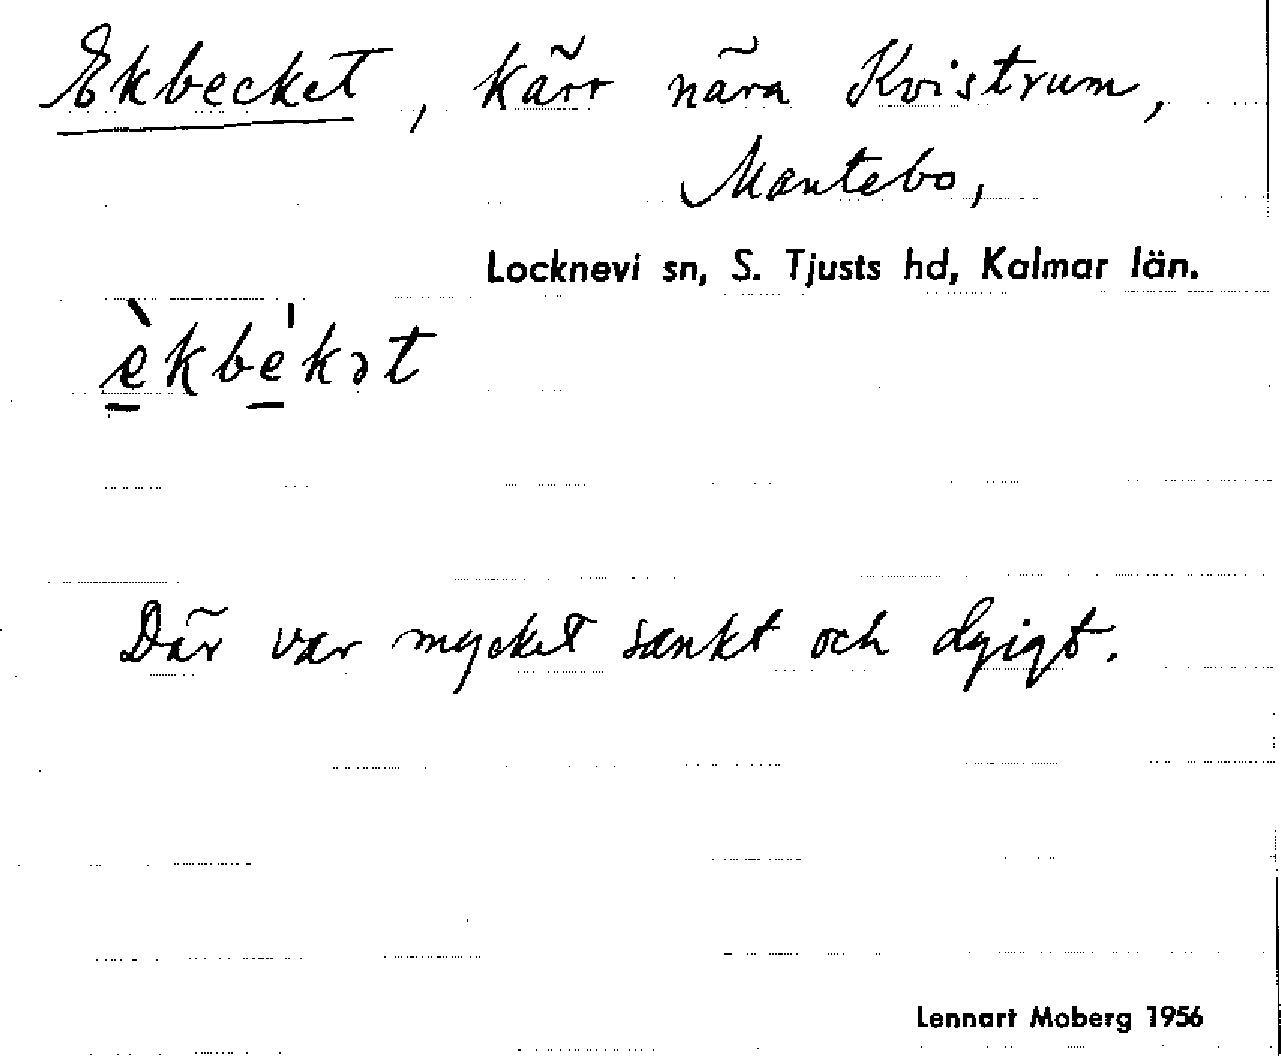 Ekbecket, kärr nära Kvistrum,
Mantebo,
Locknevi sn, S. Tjusts hd, Kalmar län.
èkbékət
Där var mycket sankt och dyigt.
Lennart Moberg 1956